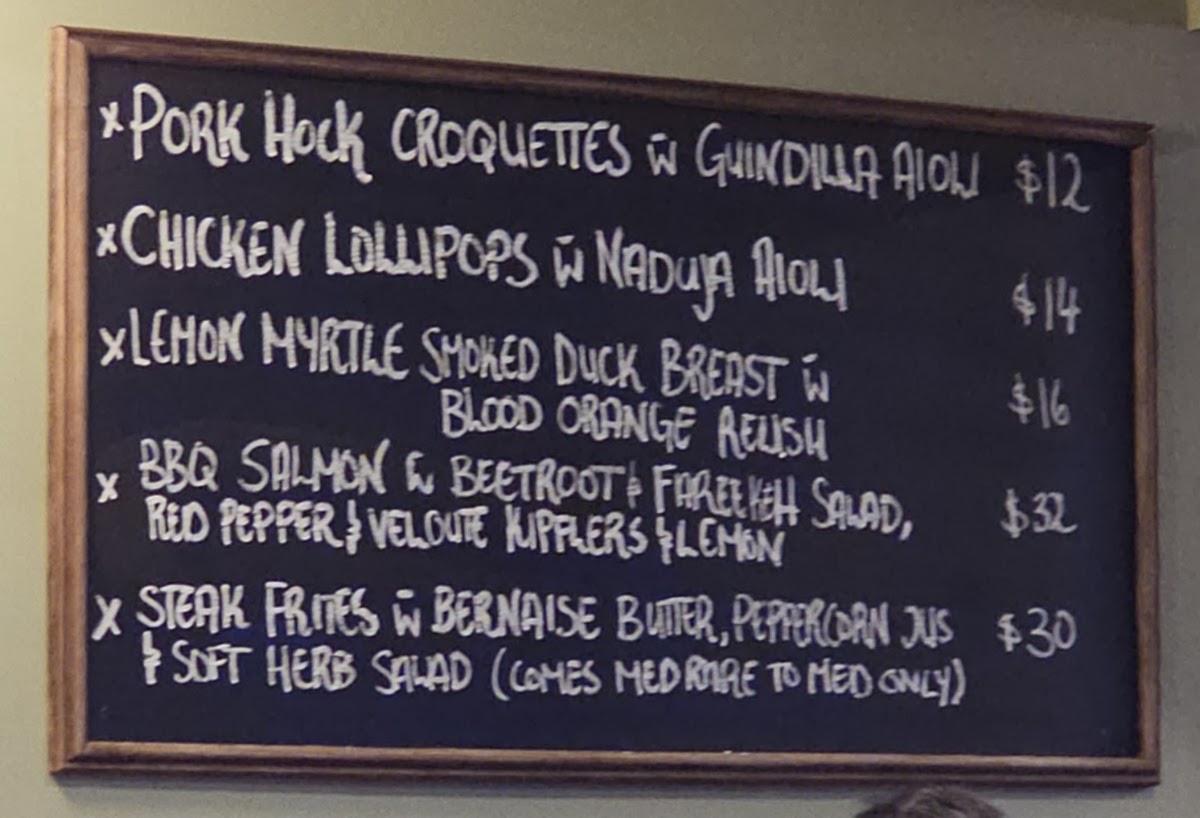 x PORK HOCK CROQUETTES w̄ GUINDILLA AIOLI $12
x CHICKEN LOLLIPOPS w̄ NADUJA AIOLI $14
x LEMON MYRTLE SMOKED DUCK BREAST w̄
BLOOD ORANGE RELISH $16
x BBQ SALMON w̄ BEETROOT & FAREEKEH SALAD,
RED PEPPER & VELOUTE KIPFLERS & LEMON $32
x STEAK FRITES w̄ BERNAISE BUTTER, PEPPERCORN JUS $30
& SOFT HERB SALAD (COMES MED RARE TO MED ONLY)